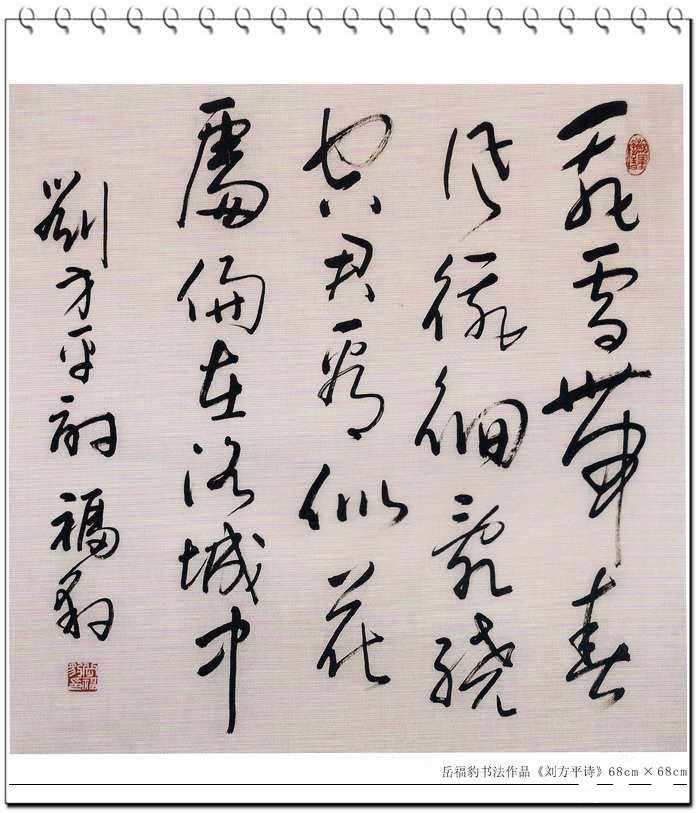 飛雪帶春
风徘徊亂繞
空君看似花
處偏在洛城中
劉方平詩 福豹
岳福豹书法作品《刘方平诗》68cm×68cm